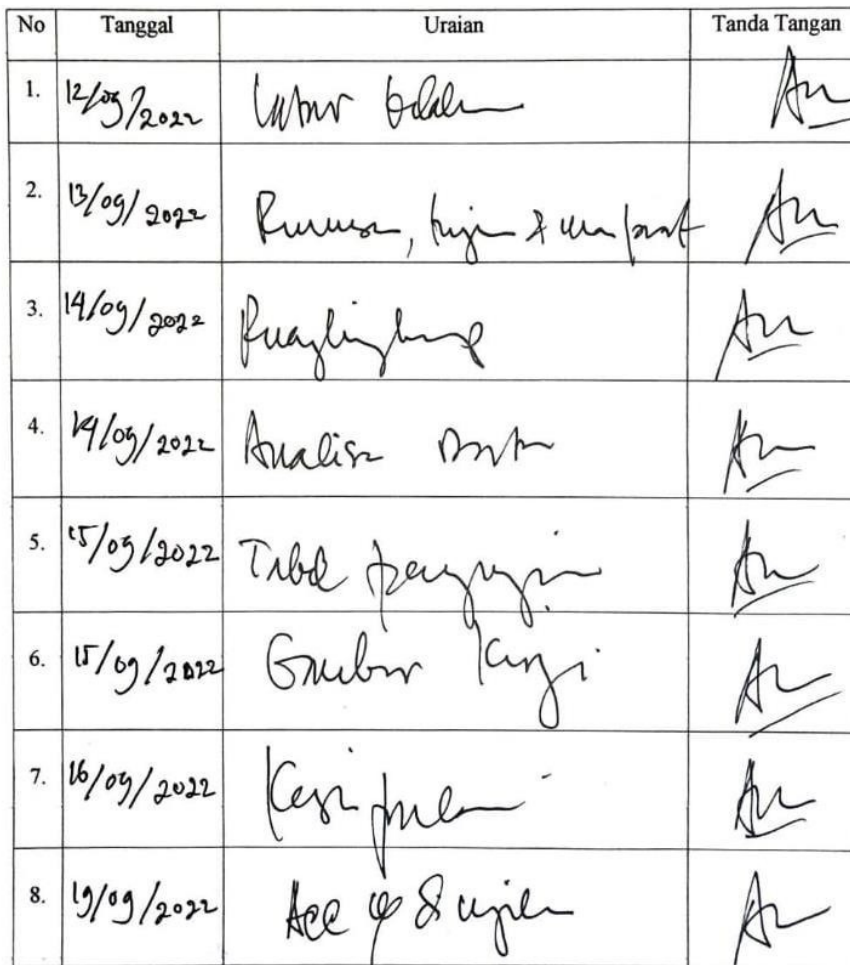 No Tanggal Uraian Tanda Tangan
1. 12/09/2022
2. 13/09/2022 Rumusan, tujuan & manfaat
3. 14/09/2022 Ruang lingkup
4. 14/09/2022 Analisa Data
5. 15/09/2022 Tabel pengujian
6. 15/09/2022 Gambar
7. 16/09/2022 Kesimpulan
8. 19/09/2022 Acc